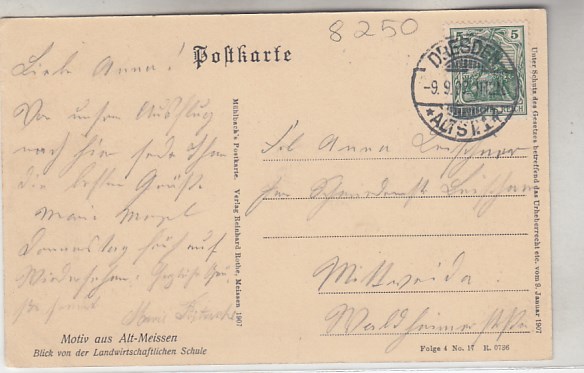 8250
Postkarte
5 5
DRESDEN
-9.9.
*ALTST.1*
Liebe Anna!
Von unserm Ausflug
nach hier sende Ihnen
die besten Grüße
Marie
Donnerstag früh auf
Wiedersehen. Herzliche Grü-
ße sendet
Frl. Anna
Mittweida.
Waldheimerstraße
Mühlbach's Postkarte. Verlag Reinhard Rothe, Meissen 1907
Unter Schutz des Gesetzes betreffend das Urheberrecht etc. vom 9. Januar 1907
Motiv aus Alt-Meissen
Blick von der Landwirtschaftlichen Schule
Folge 4 No. 17 R. 6796